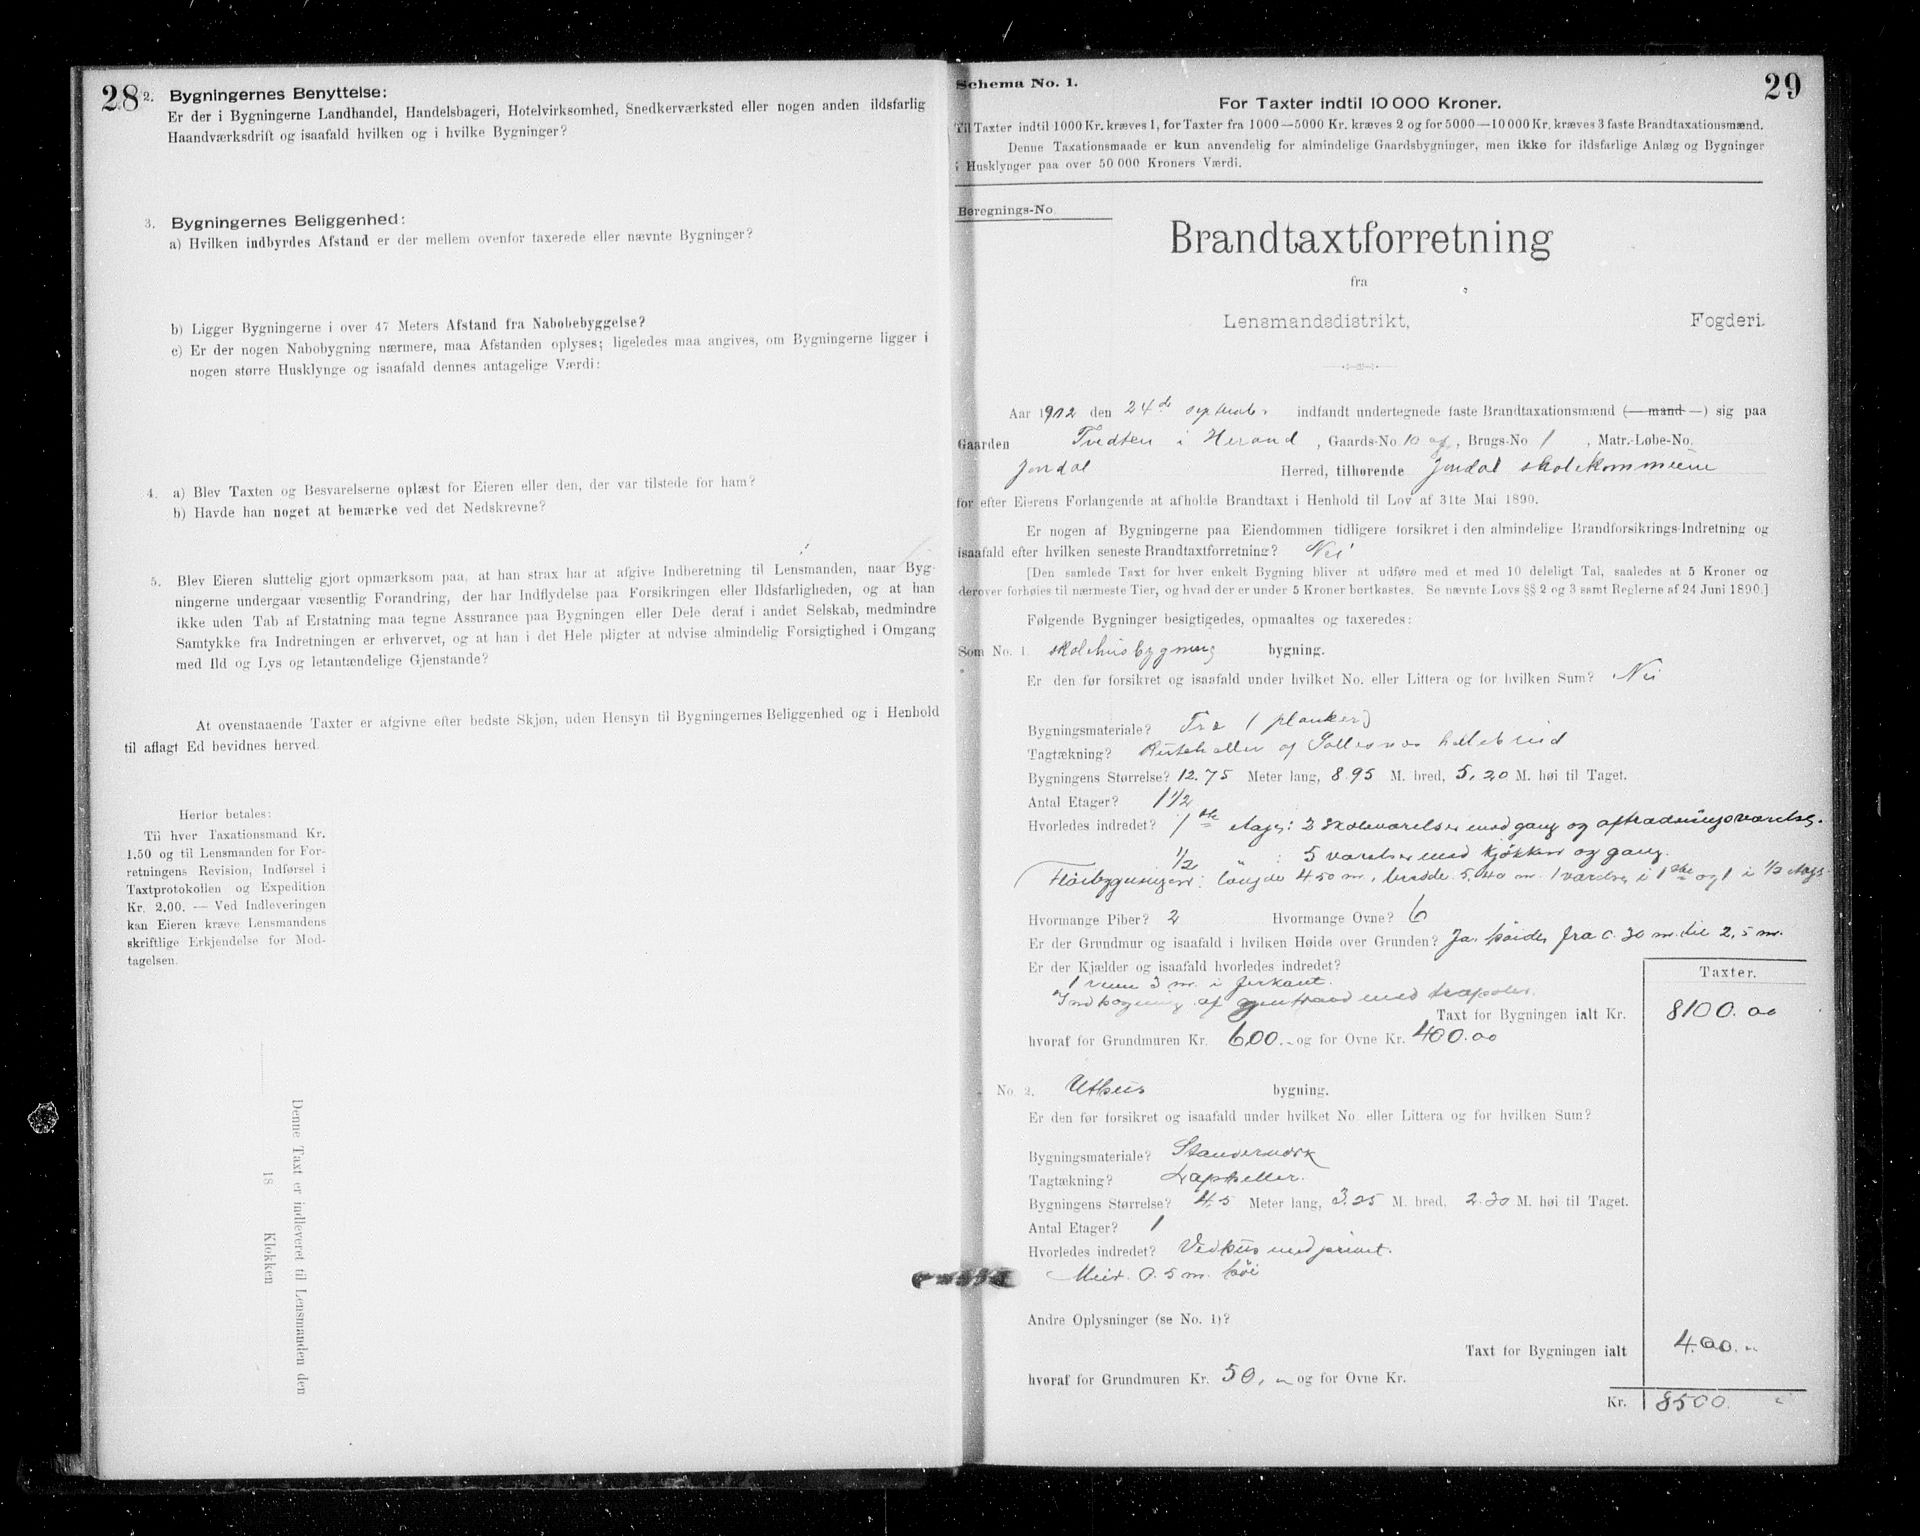 28
2. Bygningernes Benyttelse:
Er der i Bygningerne Landhandel, Handelsbageri, Hotelvirksomhed, Snedkerværksted eller nogen anden ildsfarlig
Haandværksdrift og isaafald hvilken og i hvilke Bygninger?
3. Bygningernes Beliggenhed:
a) Hvilken indbyrdes Afstand er der mellem ovenfor taxerede eller nævnte Bygninger?
b) Ligger Bygningerne i over 47 Meters Afstand fra Nabobebyggelse?
c) Er der nogen Nabobygning nærmere, maa Afstanden oplyses; ligeledes maa angives, om Bygningerne ligger i
nogen større Husklynge og isaafald dennes antagelige Værdi:
4. a) Blev Taxten og Besvarelserne oplæst for Eieren eller den, der var tilstede for ham?
b) Havde han noget at bemærke ved det Nedskrevne?
5. Blev Eieren sluttelig gjort opmærksom paa, at han strax har at afgive Indberetning til Lensmanden, naar Byg-
ningerne undergaar væsentlig Forandring, der har Indflydelse paa Forsikringen eller Ildsfarligheden, og at han
ikke uden Tab af Erstatning maa tegne Assurance paa Bygningen eller Dele deraf i andet Selskab, medmindre
Samtykke fra Indretningen er erhvervet, og at han i det Hele pligter at udvise almindelig Forsigtighed i Omgang
med Ild og Lys og letantændelige Gjenstande?
At ovenstaaende Taxter er afgivne efter bedste Skjøn, uden Hensyn til Bygningernes Beliggenhed og i Henhold
til aflagt Ed bevidnes herved.
Herfor betales:
Til hver Taxationsmand Kr.
1.50 og til Lensmanden for For-
retningens Revision, Indførsel i
Taxtprotokollen og Expedition
Kr. 2.00. — Ved Indleveringen
kan Eieren kræve Lensmandens
skriftlige Erkjendelse for Mod-
tagelsen.
Denne Taxt er indleveret til Lensmanden den
18 Klokken
Schema No. 1.
29
For Taxter indtil 10 000 Kroner.
Til Taxter indtil 1000 Kr. kræves 1, for Taxter fra 1000—5000 Kr. kræves 2 og for 5000—10 000 Kr. kræves 3 faste Brandtaxationsmænd.
Denne Taxationsmaade er kun anvendelig for almindelige Gaardsbygninger, men ikke for ildsfarlige Anlæg og Bygninger
i Husklynger paa over 50 000 Kroners Værdi.
Beregnings-No.
Brandtaxtforretning
fra
Lensmandsdistrikt, Fogderi.
Aar 1912 den 24de septbr. indfandt undertegnede faste Brandtaxationsmænd (— mand —) sig paa
Gaarden Tvedten i Herand, Gaards-No 10 af, Brugs-No 1, Matr.-Løbe-No.
Jondal Herred, tilhørende Jondal skolekommune
for efter Eierens Forlangende at afholde Brandtaxt i Henhold til Lov af 31te Mai 1890.
Er nogen af Bygningerne paa Eiendommen tidligere forsikret i den almindelige Brandforsikrings-Indretning og
isaafald efter hvilken seneste Brandtaxtforretning? Nei
[Den samlede Taxt for hver enkelt Bygning bliver at udføre med et med 10 deleligt Tal, saaledes at 5 Kroner og
derover forhøies til nærmeste Tier, og hvad der er under 5 Kroner bortkastes. Se nævnte Lovs §§ 2 og 3 samt Reglerne af 24 Juni 1890.]
Følgende Bygninger besigtigedes, opmaaltes og taxeredes:
Som No. 1. skolehusbygning bygning.
Er den før forsikret og isaafald under hvilket No. eller Littera og for hvilken Sum? Nei
Bygningsmateriale? Træ (planker)
Tagtækning? Ruteheller og
Bygningens Størrelse? 12.75 Meter lang, 8.95 M. bred, 5,20 M. høi til Taget.
Antal Etager? 1 1/2
Hvorledes indredet? 1ste etage: 2 skoleværelser med gang og aftrædningsværelse.
1/2 " : 5 værelser med kjøkken og gang.
Fløibygningen: længde 4.50 m., bredde 5,40 m. 1 værelse i 1ste og 1 i 1/2 etage
Hvormange Piber? 2 Hvormange Ovne? 6
Er der Grundmur og isaafald i hvilken Høide over Grunden? Ja. høide fra 0.30 m. til 2,5 m.
Er der Kjælder og isaafald hvorledes indredet?
1 rum 3 m. i firkant.
Indbygning af med
Taxter.
Taxt for Bygningen ialt Kr. 8100.00
hvoraf for Grundmuren Kr. 600.- og for Ovne Kr. 400.00
No. 2. Uthus bygning.
Er den før forsikret og isaafald under hvilket No. eller Littera og for hvilken Sum?
Bygningsmateriale? Standerværk
Tagtækning? Lapheller.
Bygningens Størrelse? 4,5 Meter lang, 3.25 M. bred, 2.30 M. høi til Taget.
Antal Etager? 1
Hvorledes indredet? Vedhus med privet.
Mur. 0.5 m. høi
Andre Oplysninger (se No. 1)?
Taxt for Bygningen ialt 400.-
hvoraf for Grundmuren Kr. 50,- og for Ovne Kr.
Kr. 8500.